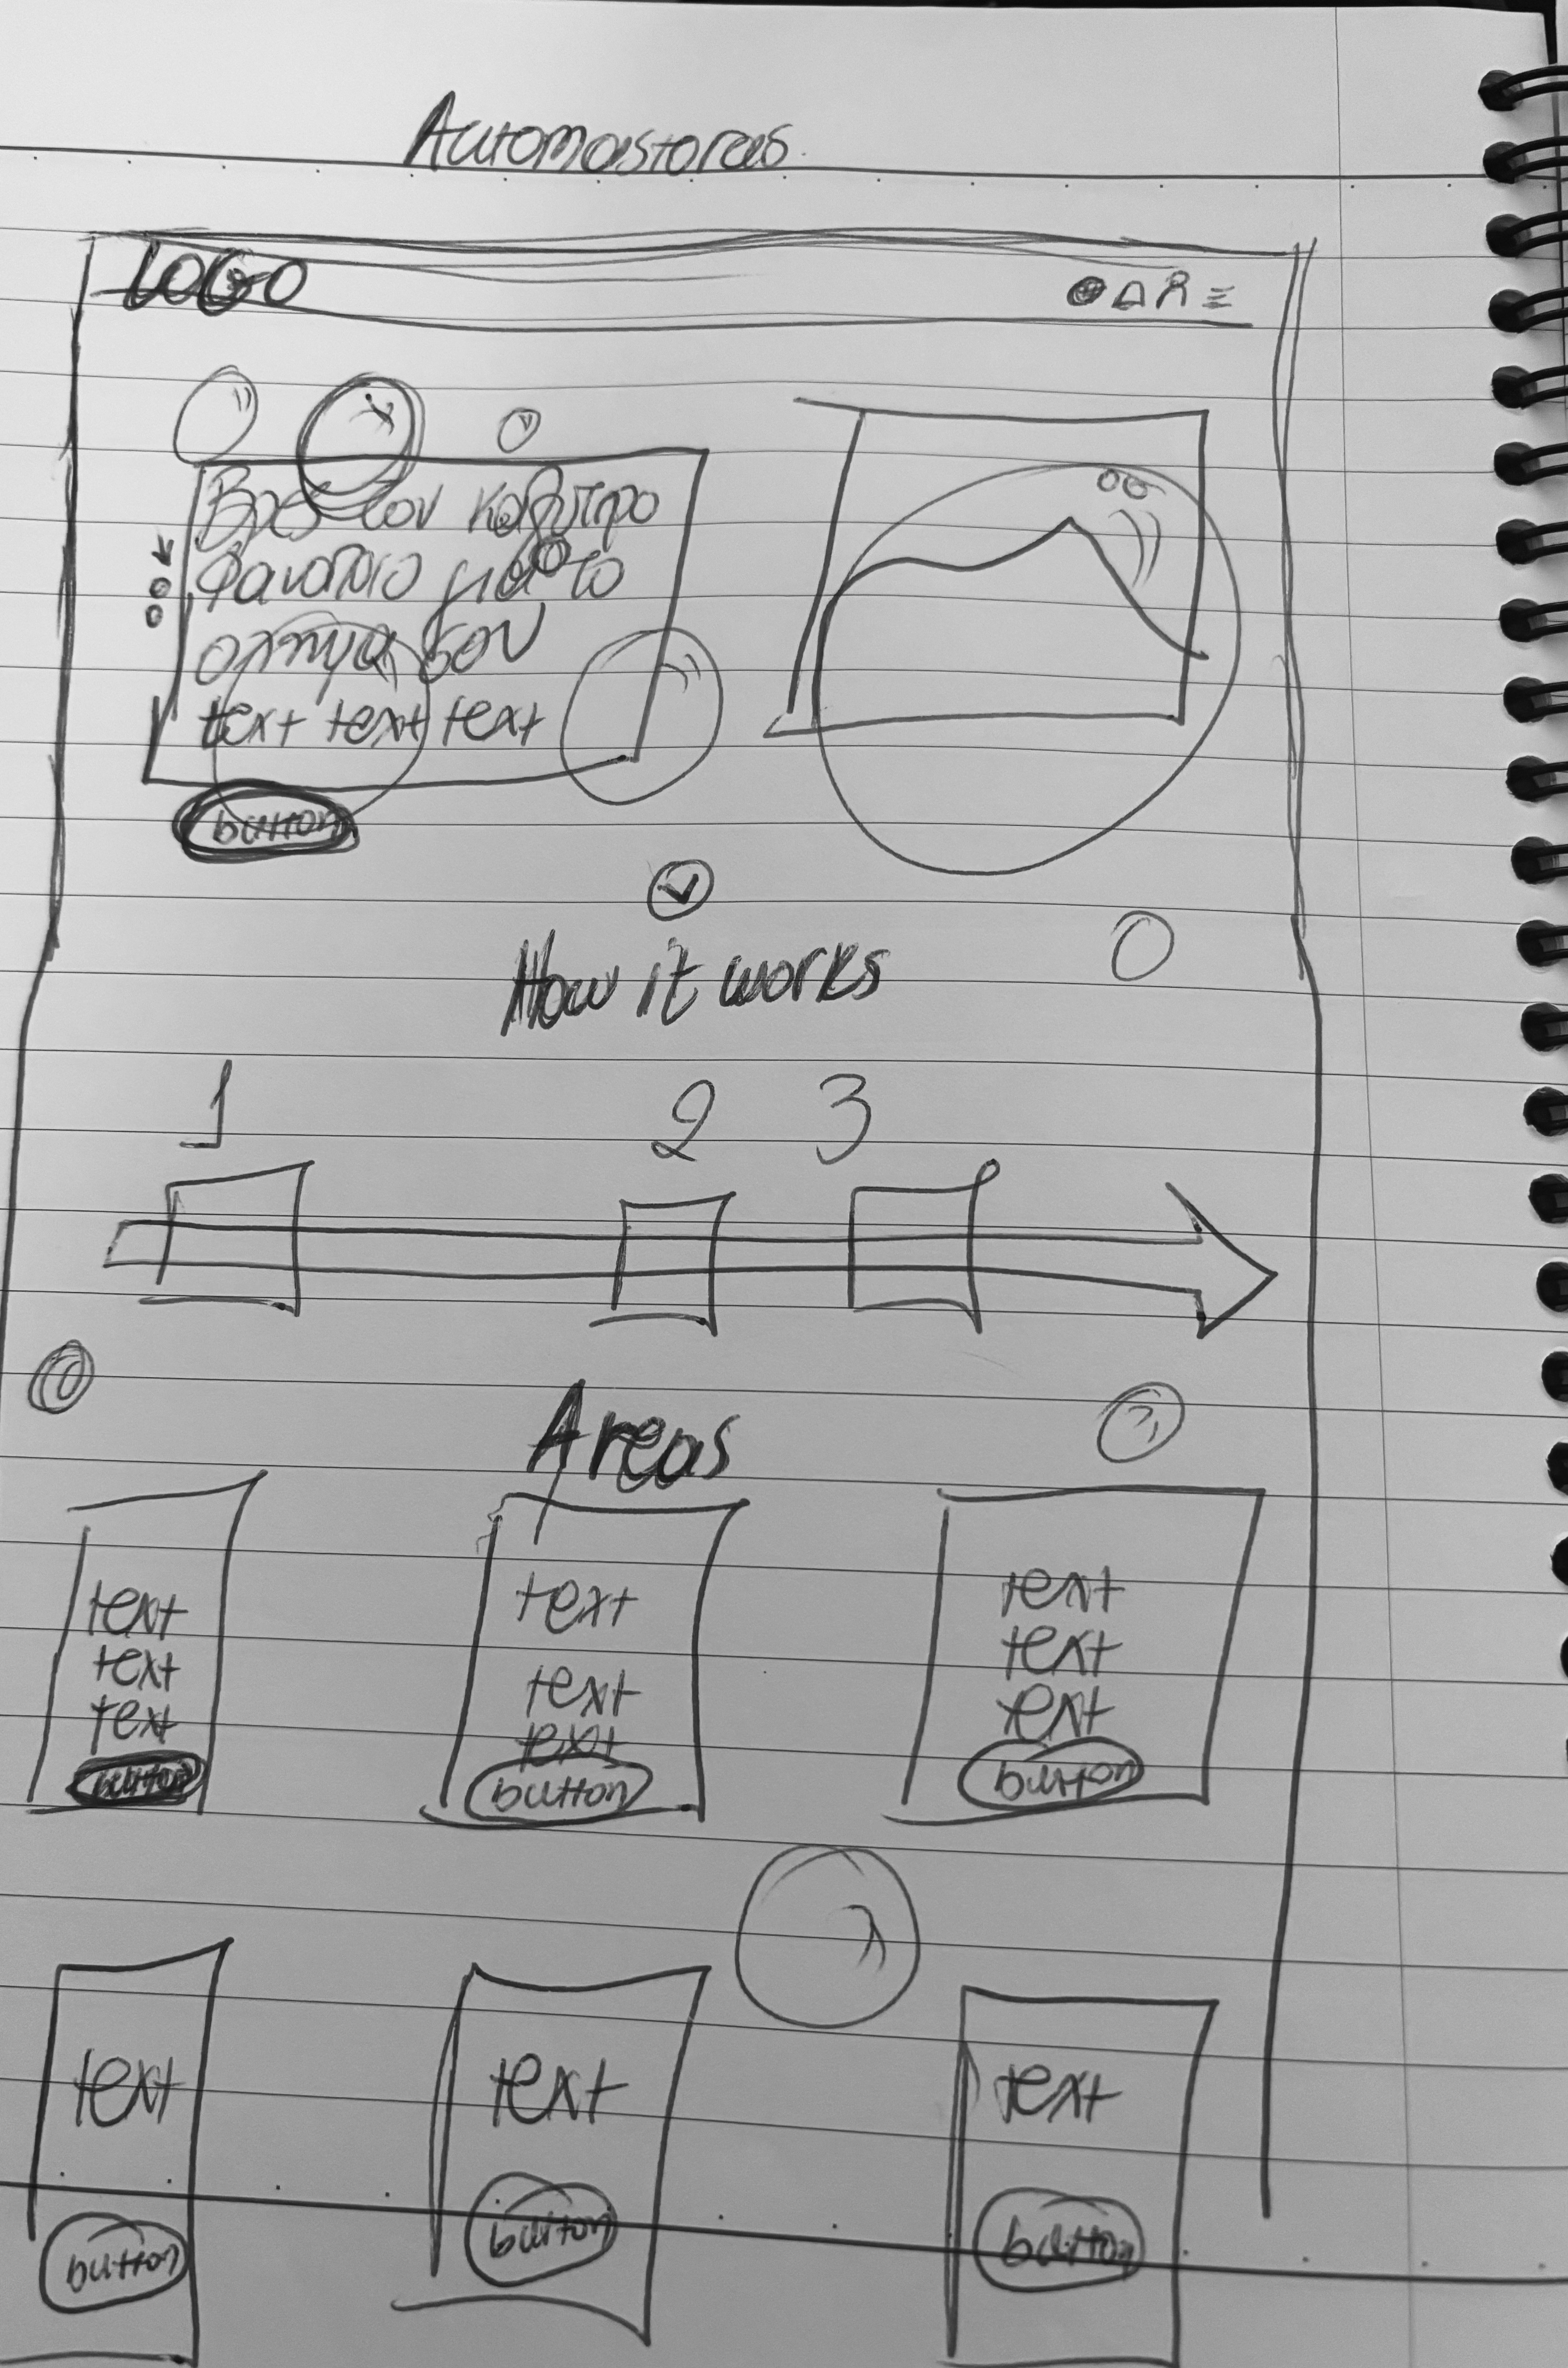 Automastoras
LOGO
Βρες τον καλυτερο
φαναποιο για το
οχημα σου
text text text
button
How it works
1 2 3
Areas
text text text
text text text
text text text
button button button
text text text
button button button